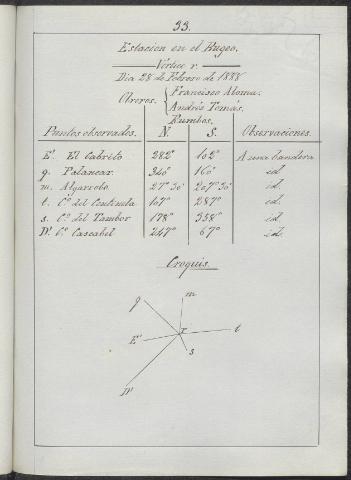 33.
Estacion en el Hugeo.
Vértice r.
Dia 28 de Febrero de 1888
Obreros. Francisco Aloma.
Andrés Tomás.
Rumbos.
Puntos observados. N. S. Observaciones.
E'. El Cabrito 282º 102º A una bandera
q. Palancar. 340º 160º id
m. Algarrobo 27º 30' 207º 30' id.
t. Cº del Centinela 107º 287º id.
s. Cº del Tambor 178º 358º id.
D'. Cº Cascabel 247º 67º id.
Croquis.
q m
r t
E' s
D'